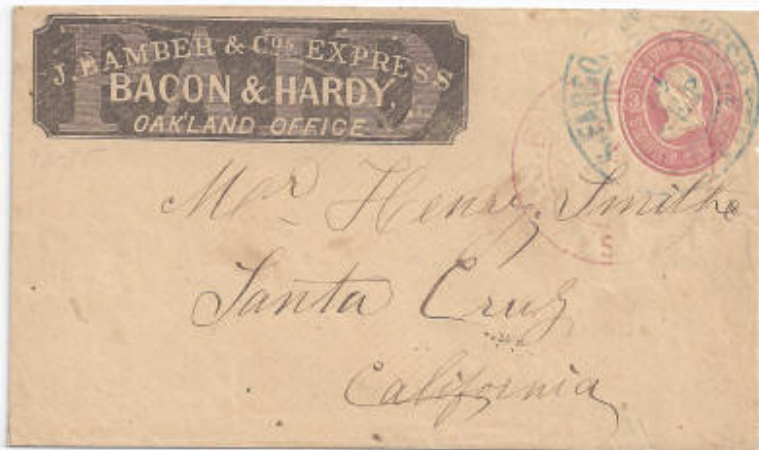 PAID
J. BAMBER & COS. EXPRESS
BACON & HARDY,
OAKLAND OFFICE
FARGO
Mr Henry Smith
Santa Cruz
California